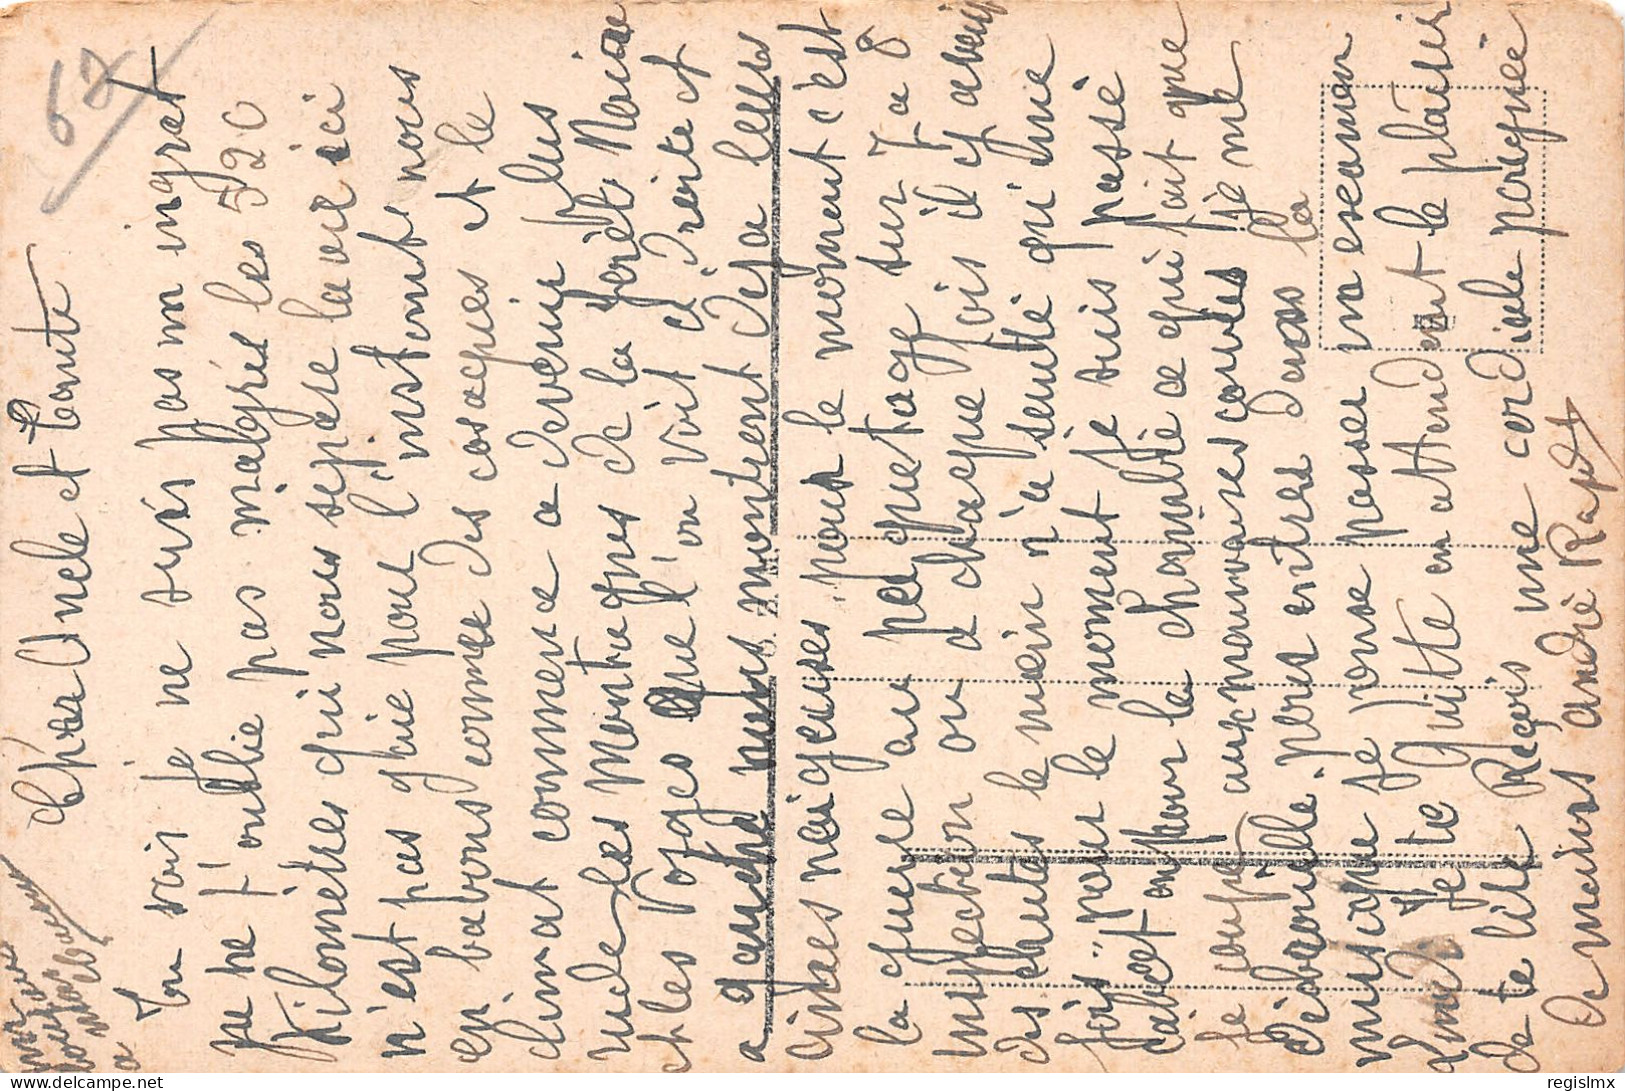 67
Cher Oncle et tante
Tu vois je ne suis pas un ingrat
je ne t'oublie pas malgrés les 520
Kilomètres qui nous sépare la vie ici
n'est pas gaie pour l'instant nous
en bavons comme des cosaques et le
climat commence a devenir plus
rude les Montagnes de la Forêt Noire
et les Vosges que l'on voit a droite et
a gauche nous montrent deja leurs
cimes neigeuses pour le moment c'est
la guerre au paquetage sur 7 a 8
inspection on a chaque fois il y avait
des chutes le mien n'a sauté qu'une
fois pour le moment je suis passé
cabot pour la chambre ce qui fait que
je coupe aux mauvaises corvées je me
débrouille. pres entrer dans la
musique je pense passer un examen
Lundi Je te Quitte en attendant le plaisir
de te lire Reçois une cordiale poignée
de mains André Rapt
regislmx